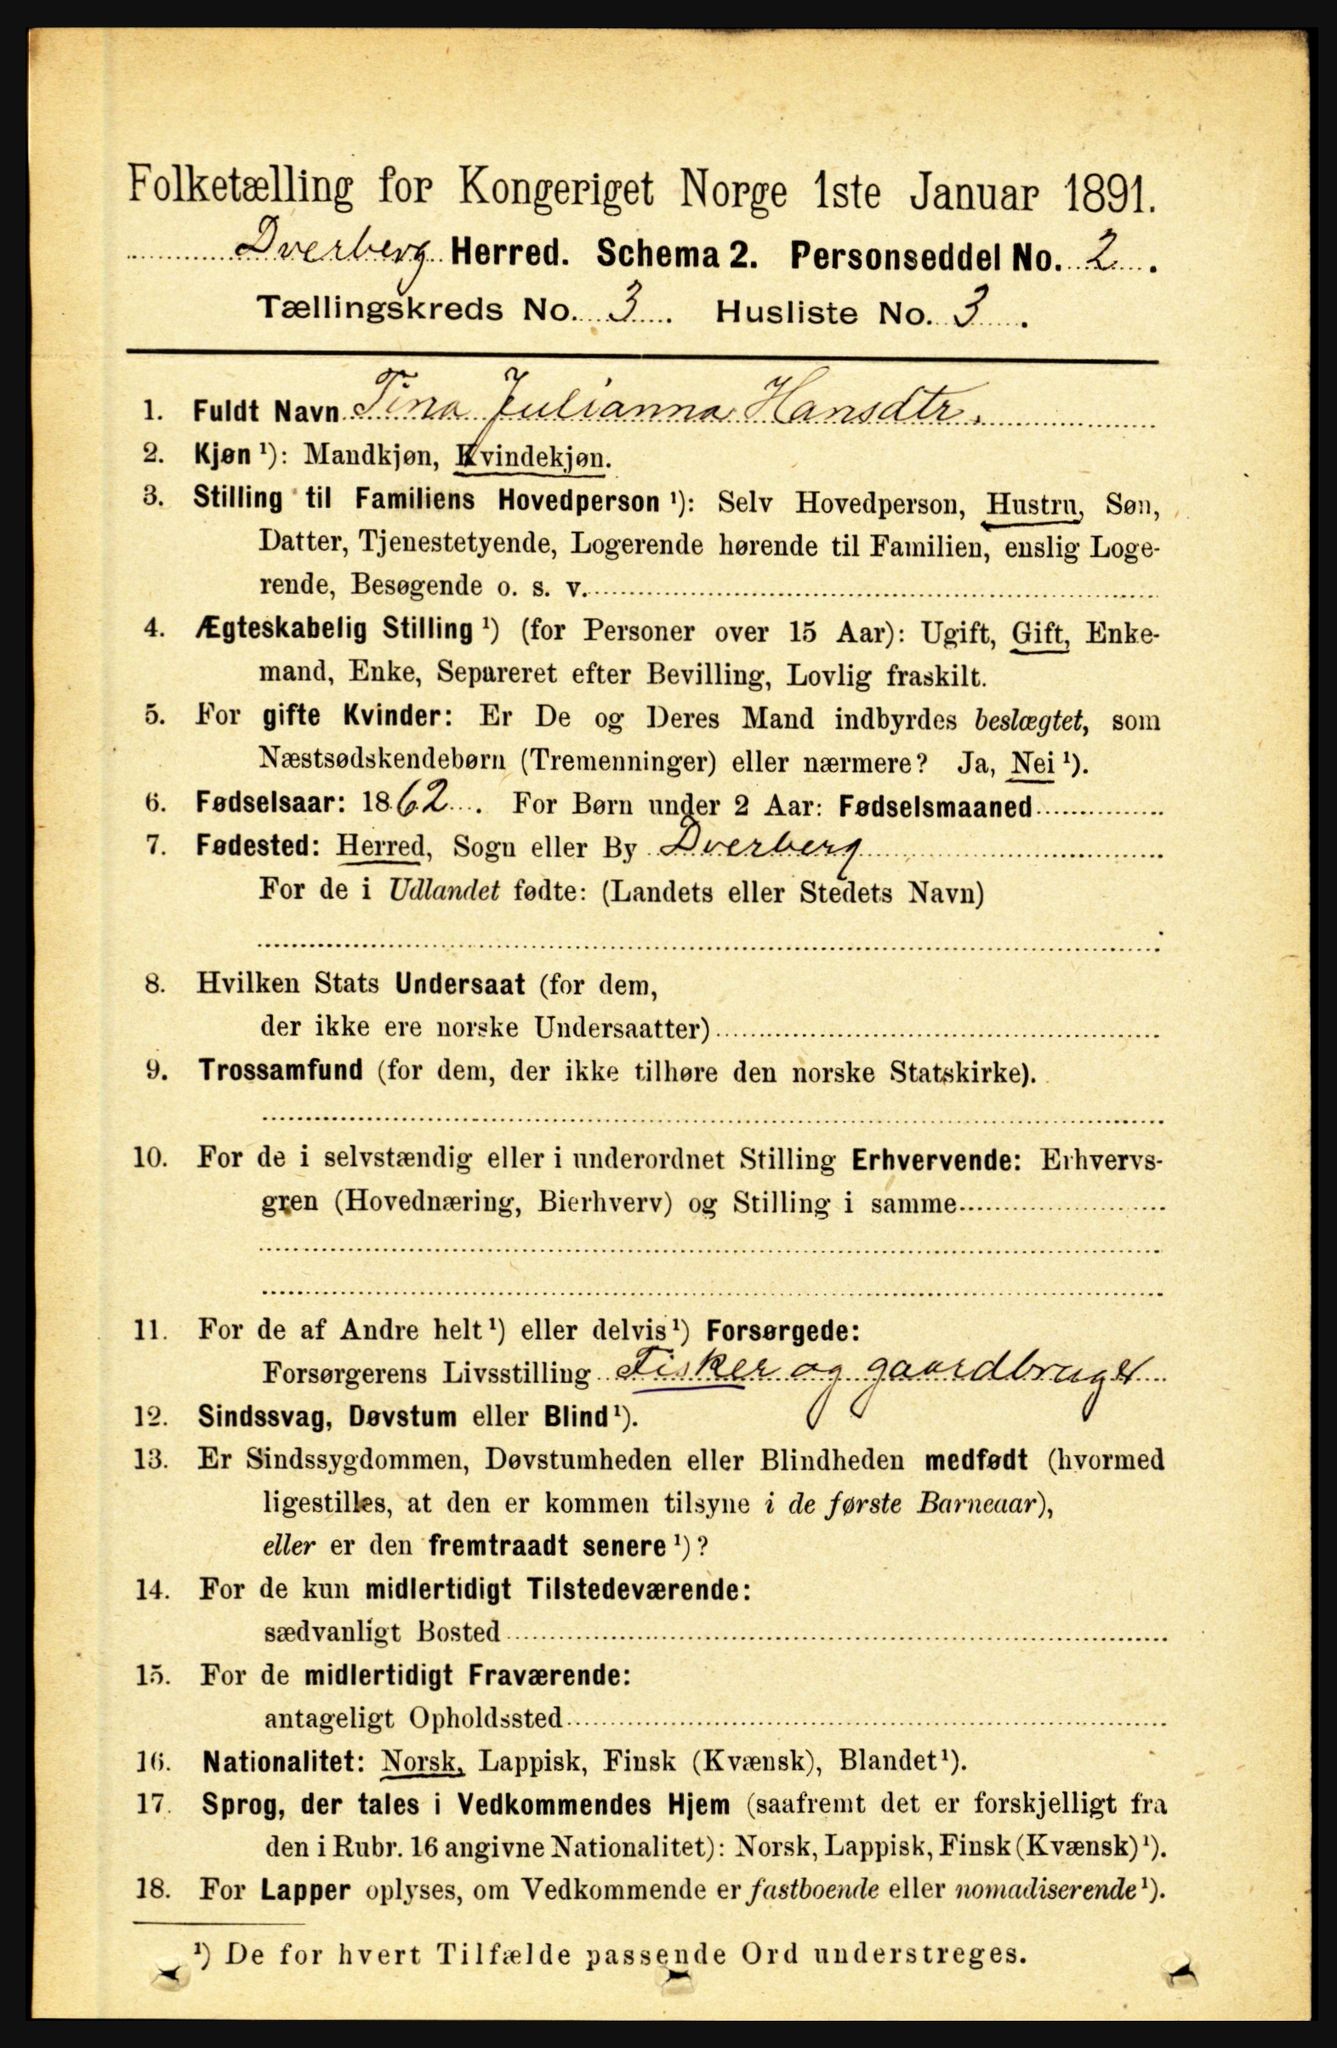 Folketælling for Kongeriget Norge 1ste Januar 1891.
Dverberg Herred. Schema 2. Personseddel No. 2.
Tællingskreds No. 3. Husliste No. 3.
1. Fuldt Navn Tina Julianna Hansdtr.
2. Kjøn ¹): Mandkjøn, Kvindekjøn.
3. Stilling til Familiens Hovedperson ¹): Selv Hovedperson, Hustru, Søn,
Datter, Tjenestetyende, Logerende hørende til Familien, enslig Loge-
rende, Besøgende o. s. v.
4. Ægteskabelig Stilling ¹) (for Personer over 15 Aar): Ugift, Gift, Enke-
mand, Enke, Separeret efter Bevilling, Lovlig fraskilt.
5. For gifte Kvinder: Er De og Deres Mand indbyrdes beslægtet, som
Næstsødskendebørn (Tremenninger) eller nærmere? Ja, Nei ¹).
6. Fødselsaar: 1862. For Børn under 2 Aar: Fødselsmaaned
7. Fødested: Herred, Sogn eller By Dverberg
For de i Udlandet fødte: (Landets eller Stedets Navn)
8. Hvilken Stats Undersaat (for dem,
der ikke ere norske Undersaatter)
9. Trossamfund (for dem, der ikke tilhøre den norske Statskirke).
10. For de i selvstændig eller i underordnet Stilling Erhvervende: Erhvervs-
gren (Hovednæring, Bierhverv) og Stilling i samme
11. For de af Andre helt ¹) eller delvis ¹) Forsørgede:
Forsørgerens Livsstilling Fisker og gaardbruger
12. Sindssvag, Døvstum eller Blind ¹).
13. Er Sindssygdommen, Døvstumheden eller Blindheden medfødt (hvormed
ligestilles, at den er kommen tilsyne i de første Barneaar),
eller er den fremtraadt senere ¹)?
14. For de kun midlertidigt Tilstedeværende:
sædvanligt Bosted
15. For de midlertidigt Fraværende:
antageligt Opholdssted
16. Nationalitet: Norsk, Lappisk, Finsk (Kvænsk), Blandet ¹).
17. Sprog, der tales i Vedkommendes Hjem (saafremt det er forskjelligt fra
den i Rubr. 16 angivne Nationalitet): Norsk, Lappisk, Finsk (Kvænsk) ¹).
18. For Lapper oplyses, om Vedkommende er fastboende eller nomadiserende ¹).
¹) De for hvert Tilfælde passende Ord understreges.